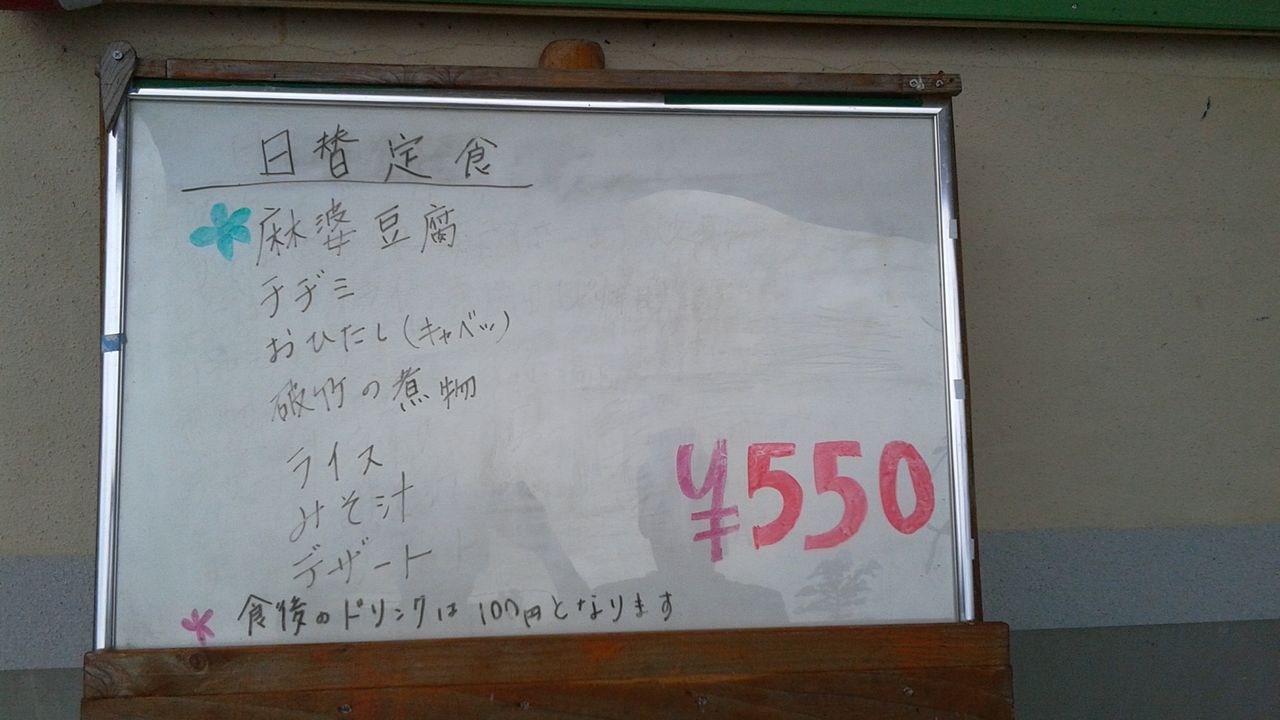 日替定食
麻婆豆腐
チヂミ
おひたし(キャベツ)
破竹の煮物
ライス
みそ汁
デザート
¥550
食後のドリンクは100円となります